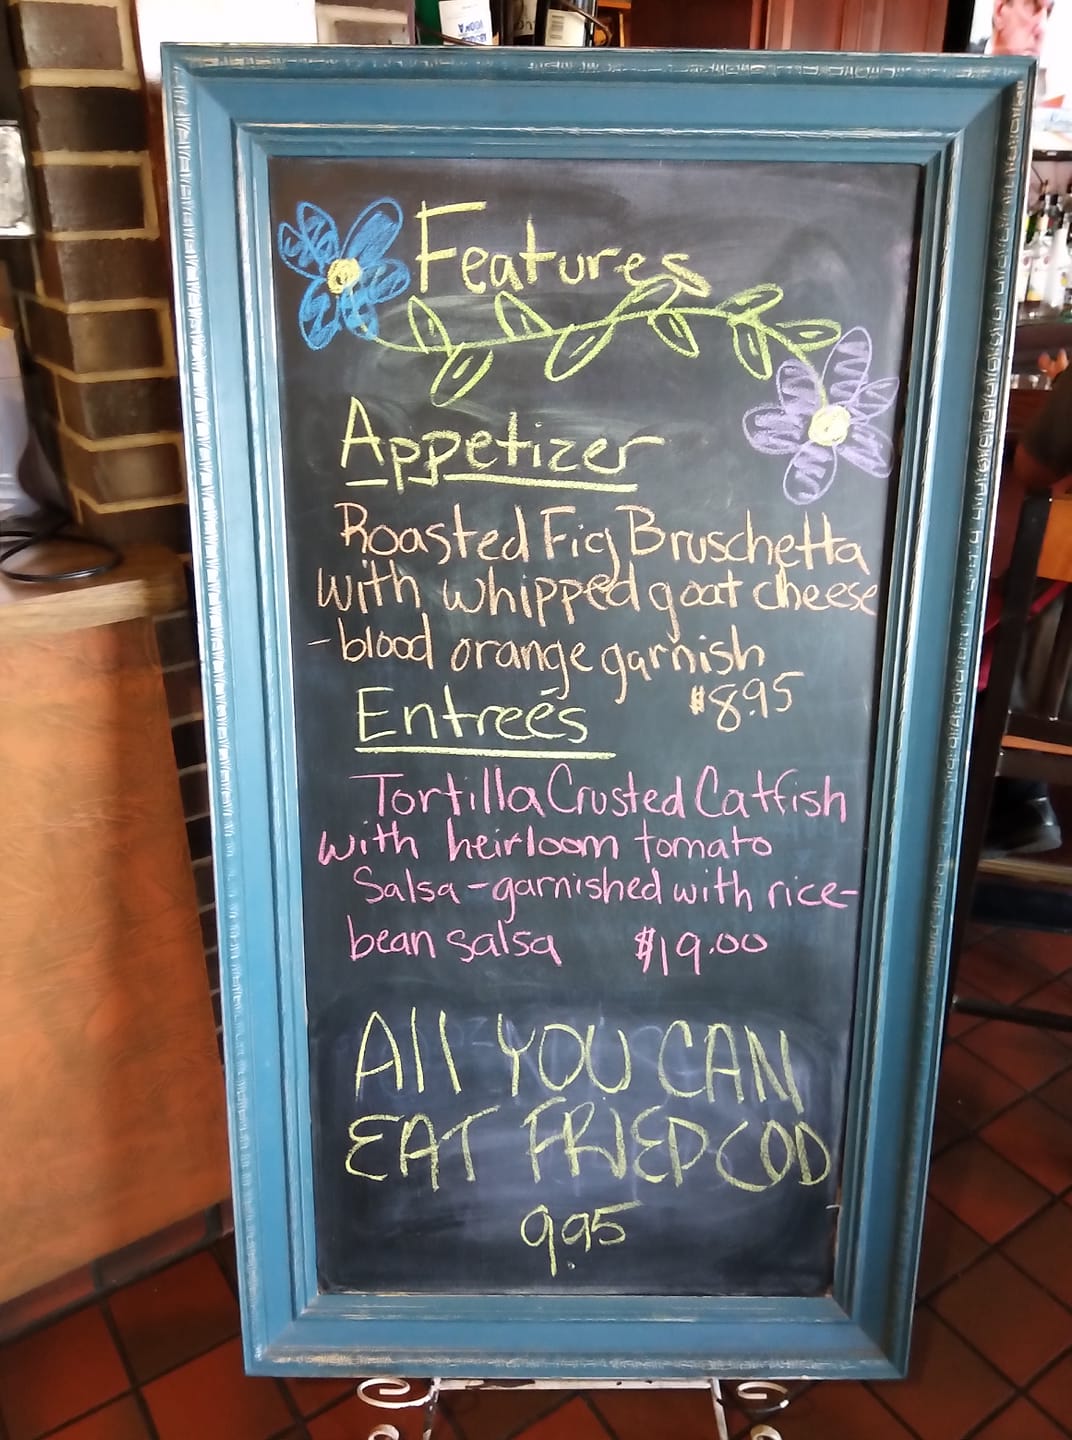 Features
Appetizer
Roasted Fig Bruschetta
with whipped goat cheese
-blood orange garnish
$8.95
Entreés
Tortilla Crusted Catfish
with heirloom tomato
Salsa-garnished with rice-
bean salsa $19.00
All YOU CAN
EAT FRIED COD
9.95